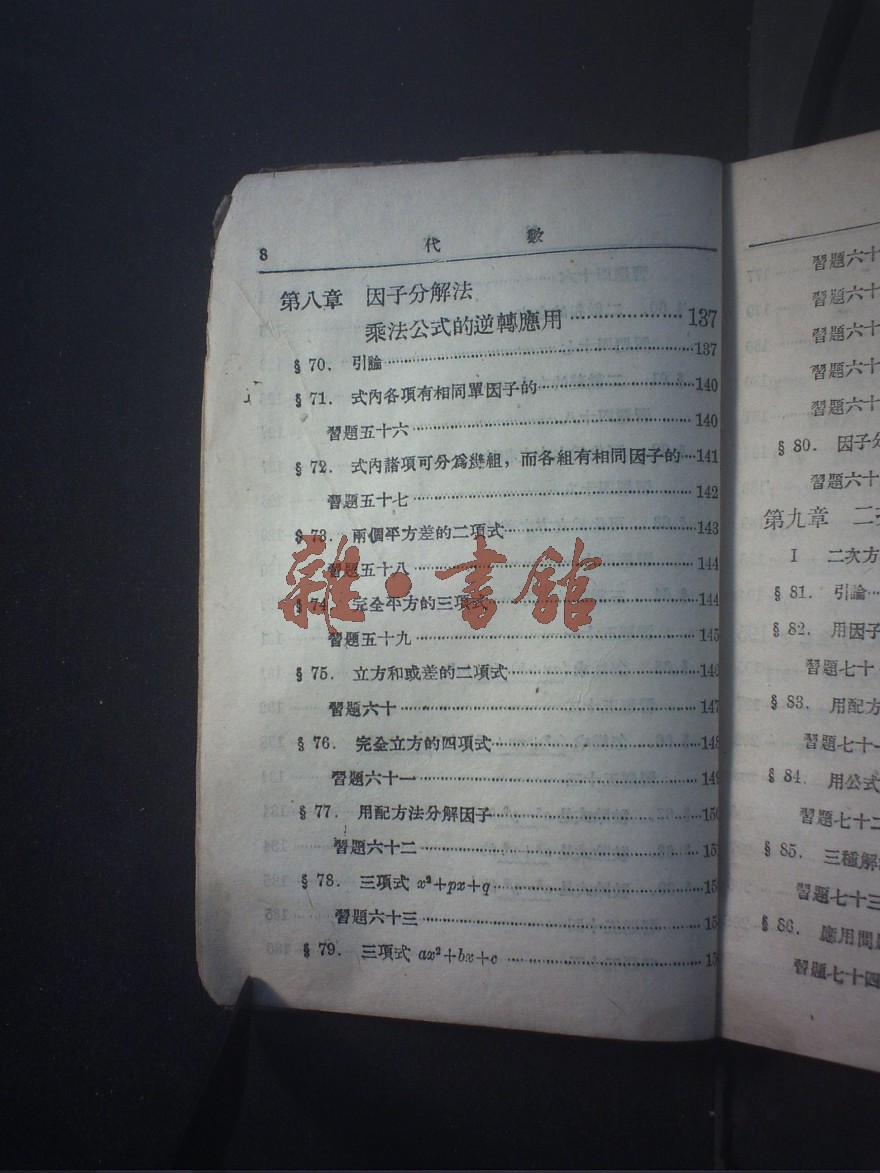 8 代 數
第八章 因子分解法
乘法公式的逆轉應用 137
§ 70. 引論 137
§ 71. 式內各項有相同單因子的 140
習題五十六 140
§ 72. 式內諸項可分爲幾組，而各組有相同因子的 141
習題五十七 142
§ 73. 兩個平方差的二項式 143
習題五十八 144
§ 74. 完全平方的三項式 144
習題五十九 145
§ 75. 立方和或差的二項式 146
習題六十 147
§ 76. 完全立方的四項式 148
習題六十一 149
§ 77. 用配方法分解因子 150
習題六十二 15
§ 78. 三項式 x²+px+q 15
習題六十三 15
§ 79. 三項式 ax²+bx+c 15
雜·書館
習題六十
習題六十
習題六十
習題六十
習題六十
§ 80. 因子分
習題六十
第九章 二
I 二次方
§ 81. 引論
§ 82. 用因子
習題七十
§ 83. 用配方
習題七十一
§ 84. 用公式
習題七十二
§ 85. 三種解
習題七十三
§ 86. 應用問
習題七十四